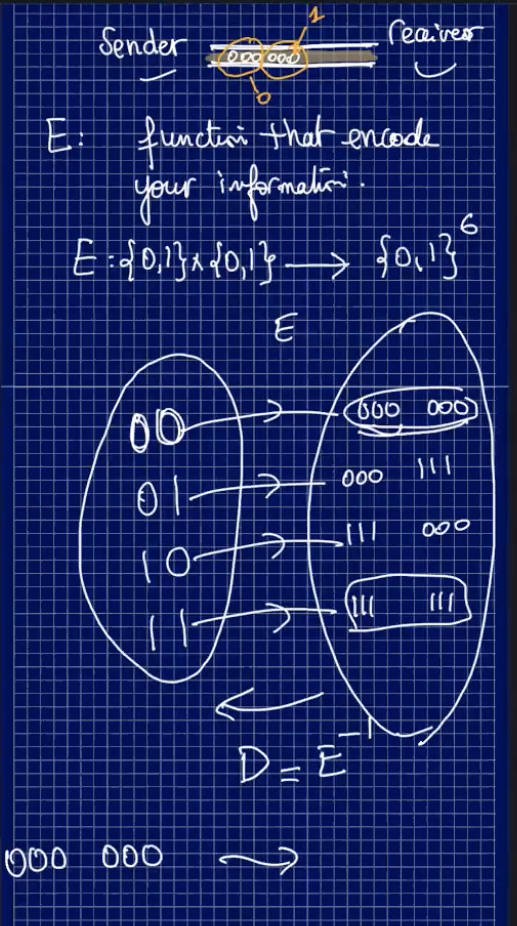 Sender 000 000 1 receiver
0
E: function that encode
your information.
E : {0,1} x {0,1} → {0,1}^6
E
00 → 000 000
01 → 000 111
10 → 111 000
11 → 111 111
←
D = E^-1
000 000 →